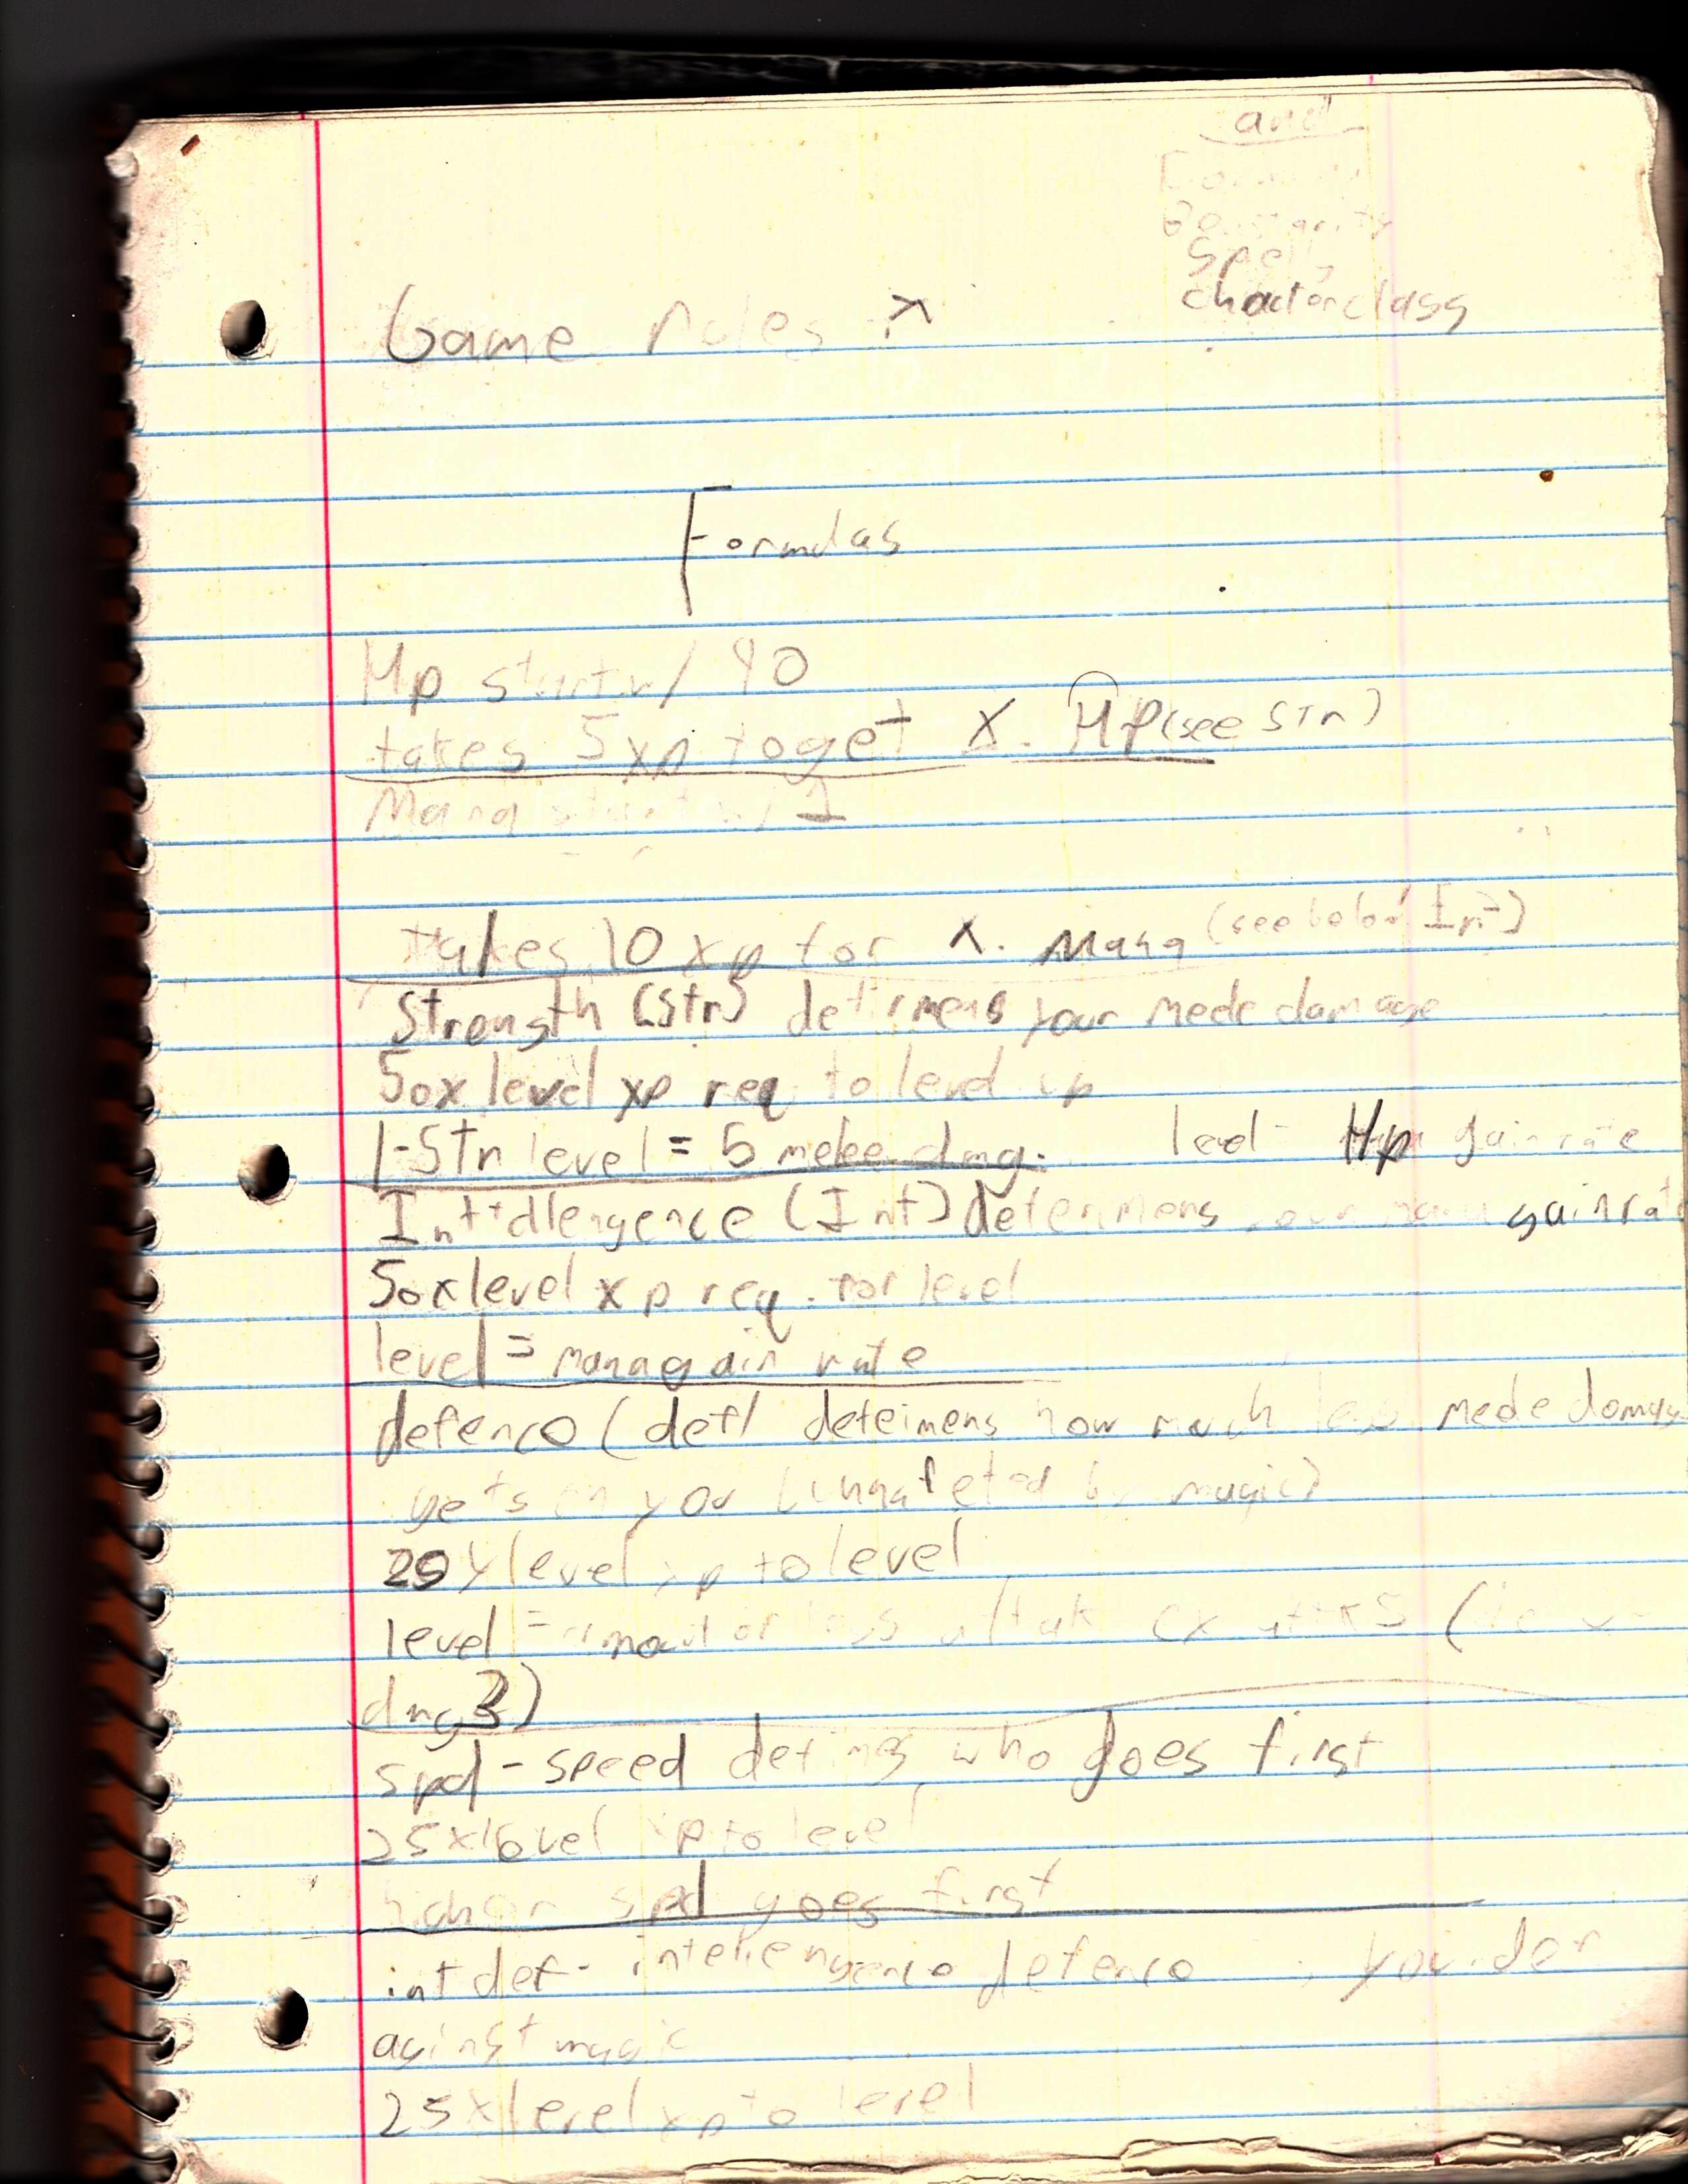 and
Spells
chacterclass
Game rules
Formulas
Hp start w/ 90
takes 5 xp to get X. Hp (see Str)
Mana start w/ 1
takes 10 xp for X. Mana (see below Int)
Strength (Str) detirmens your melee damage
50x level xp req. to level up
1-Str level = 5 melee dmg. level - Hp gain rate
Inttdlengence (Int) detenmens your mana gain rat
50xlevel xp req. for level
level = mana gain rate
defence (def) deteimens how much less melee domag
gets on you (unnafeted by magic)
25xlevel xp to level
level =
dmg 3)
spd - speed detirmes who goes first
25xlevel xp to level
higher spd goes first
int def - inteliengence defence your def
aginst magic
25xlevel xp to level